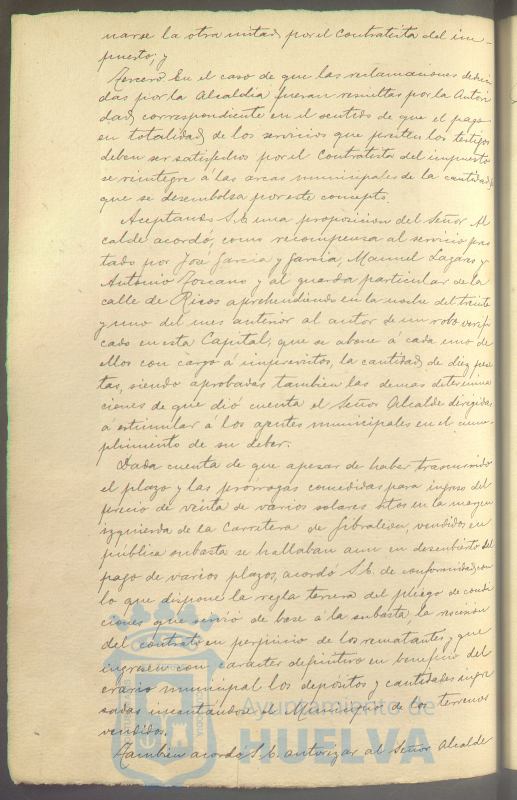 narse la otra mitad por el Contratista del im-
puesto; y
Tercero. En el caso de que las reclamaciones deduci
das por la Alcaldia fueran resueltas por la Autori
dad correspondiente en el sentido de que el pago
en totalidad de los servicios que presten los testigos
deben ser satisfechos por el Contratista del impuesto
se reintegre á las arcas municipales de la cantidad
que se desembolsa por este concepto.
Aceptando S.E. una proposicion del Señor Al
calde acordó, como recompensa al servicio pres
tado por José Garcia y Garcia, Manuel Lazares y
Antonio Toscano y al guarda particular de la
calle de Ricos aprehendiendo en la noche del treinta
y uno del mes anterior al autor de un robo verifi
cado en esta Capital, que se abone á cada uno de
ellos con cargo á imprevistos, la cantidad de diez pese
tas, siendo aprobadas tambien las demas determina
ciones de que dió cuenta el Señor Alcalde dirigidas
á estimular á los agentes municipales en el cum-
plimiento de su deber.
Dada cuenta de que apesar de haber trascurrido
el plazo y las prórrogas concedidas para ingreso del
precio de venta de varios solares sitos en la margen
izquierda de la Carretera de Gibraleon, vendidos en
pública subasta se hallaban aun en descubierto del
pago de varios plazos, acordó S.E. de conformidad con
lo que dispone la regla tercera del pliego de condi
ciones que sirvió de base á la subasta, la rescisión
del contrato en perjuicio de los rematantes, y que
ingresen con caracter definitivo en beneficio del
erario municipal los depósitos y cantidades ingre
sadas incautandose el Municipio de los terrenos
vendidos.
Tambien acordó S.E. autorizar al Señor Alcalde
Ayuntamiento de
HUELVA